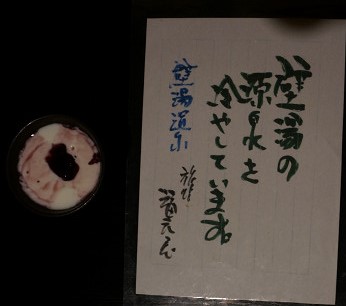 壁湯の
源泉を
冷やしています
壁湯温泉
旅館 福元屋